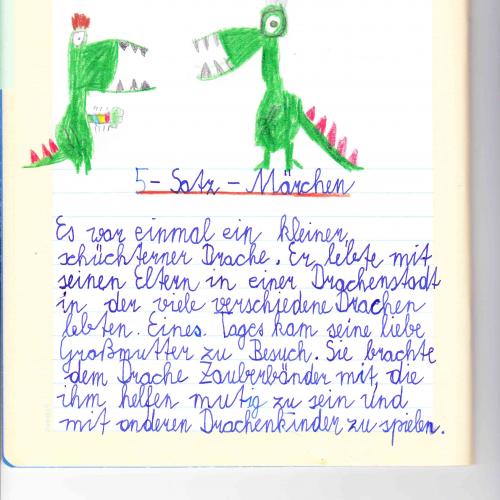 5-Satz-Märchen
Es war einmal ein kleiner,
schüchterner Drache. Er lebte mit
seinen Eltern in einer Drachenstadt
in der viele verschiedene Drachen
lebten. Eines Tages kam seine liebe
Großmutter zu Besuch. Sie brachte
dem Drache Zauberbänder mit, die
ihm helfen mutig zu sein und
mit anderen Drachenkinder zu spielen.